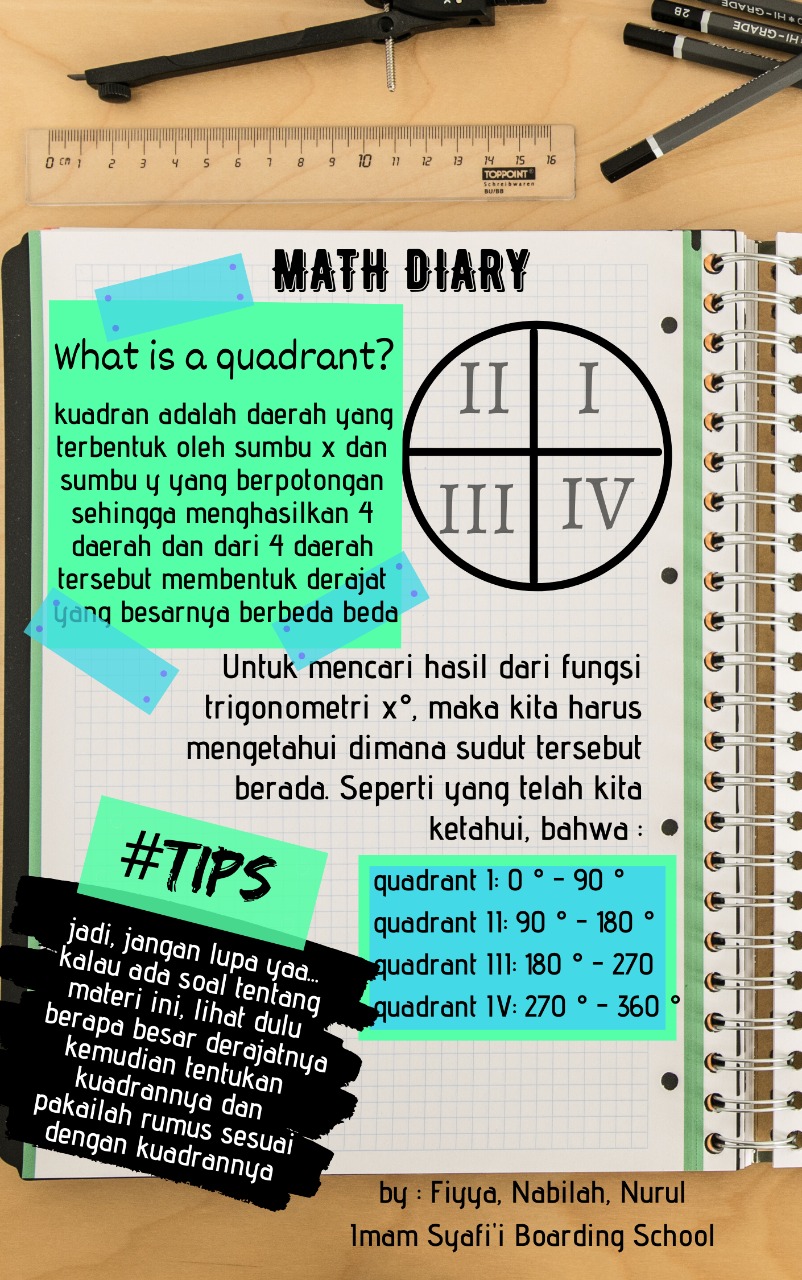 HI-GRADE
2B HI-GRADE
0 cm 1 2 3 4 5 6 7 8 9 10 11 12 13 14 15 16
TOPPOINT
Schreibwaren
BU/BB
MATH DIARY
What is a quadrant?
kuadran adalah daerah yang
terbentuk oleh sumbu x dan
sumbu y yang berpotongan
sehingga menghasilkan 4
daerah dan dari 4 daerah
tersebut membentuk derajat
yang besarnya berbeda beda
II I
III IV
Untuk mencari hasil dari fungsi
trigonometri x°, maka kita harus
mengetahui dimana sudut tersebut
berada. Seperti yang telah kita
ketahui, bahwa :
quadrant I: 0 ° - 90 °
quadrant II: 90 ° - 180 °
quadrant III: 180 ° - 270
quadrant IV: 270 ° - 360 °
#TIPS
jadi, jangan lupa yaa...
kalau ada soal tentang
materi ini, lihat dulu
berapa besar derajatnya
kemudian tentukan
kuadrannya dan
pakailah rumus sesuai
dengan kuadrannya
by : Fiyya, Nabilah, Nurul
Imam Syafi'i Boarding School